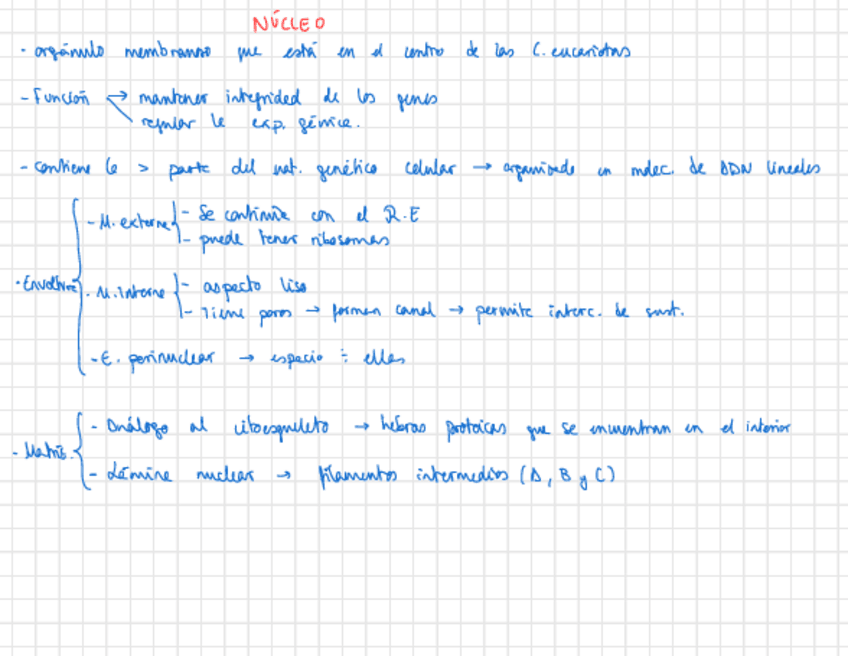 NÚCLEO
· orgánulo membranoso que está en el centro de las C. eucariotas
- Función → mantener integridad de los genes
regular la exp. génica.
- contiene la > parte del mat. genético celular → organizada en molec. de ADN lineales
- M. externa - Se continúa con el R.E
- puede tener ribosomas
· Envoltura
- M. Interna - aspecto liso
- Tiene poros → forman canal → permite interc. de sust.
- E. perinuclear → espacio ÷ ellas
- Análogo al citoesqueleto → hebras proteicas que se encuentran en el interior
- Matriz
- Lámina nuclear → filamentos intermedios (A, B y C)